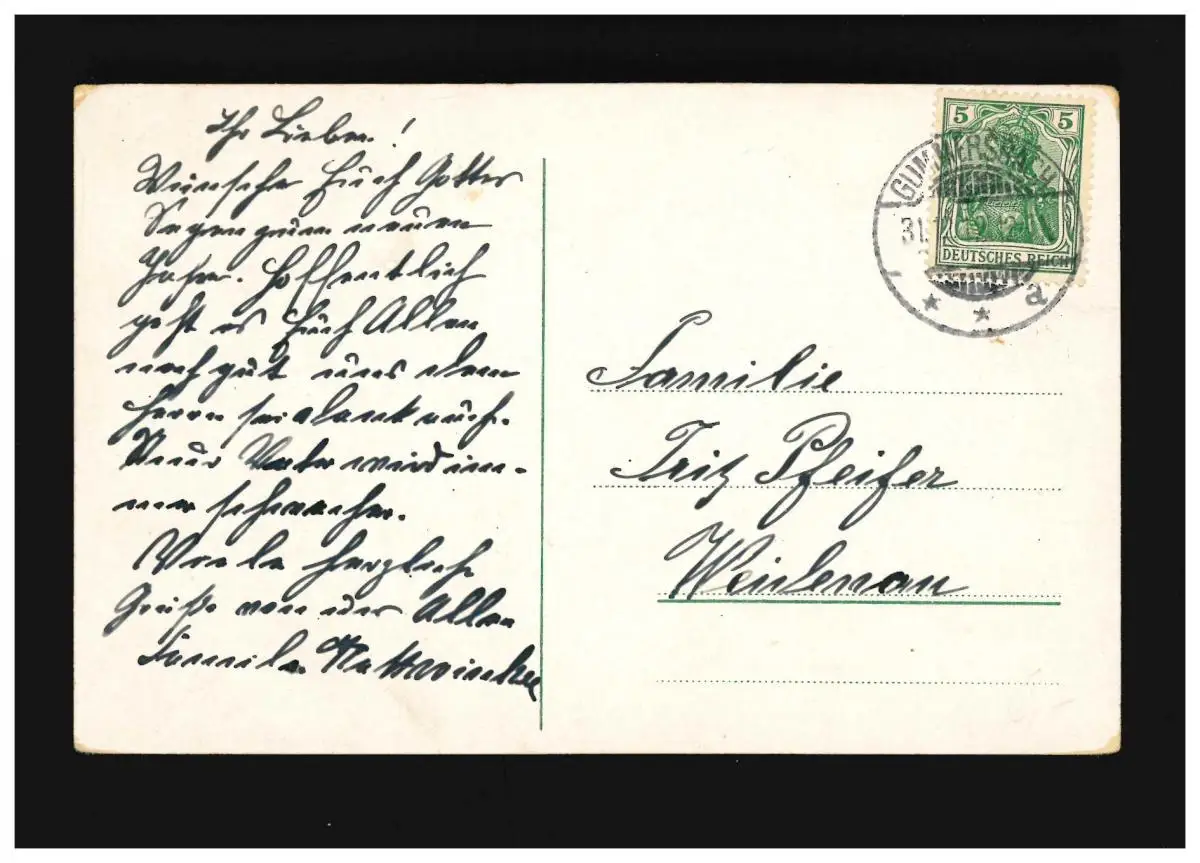 Ihr Lieben!
Wünsche Euch Gottes
Segen zum neuen
Jahr. Hoffentlich
geht es Euch Allen
noch gut uns dem
Herrn sei dank auch.
Vater wird im-
mer schwächer.
Viele herzliche
Grüße von uns Allen
Familie
5 5
DEUTSCHES REICH
GUMMERSBACH
31.
* * a
Familie
Fritz Pfeifer
Weidenau